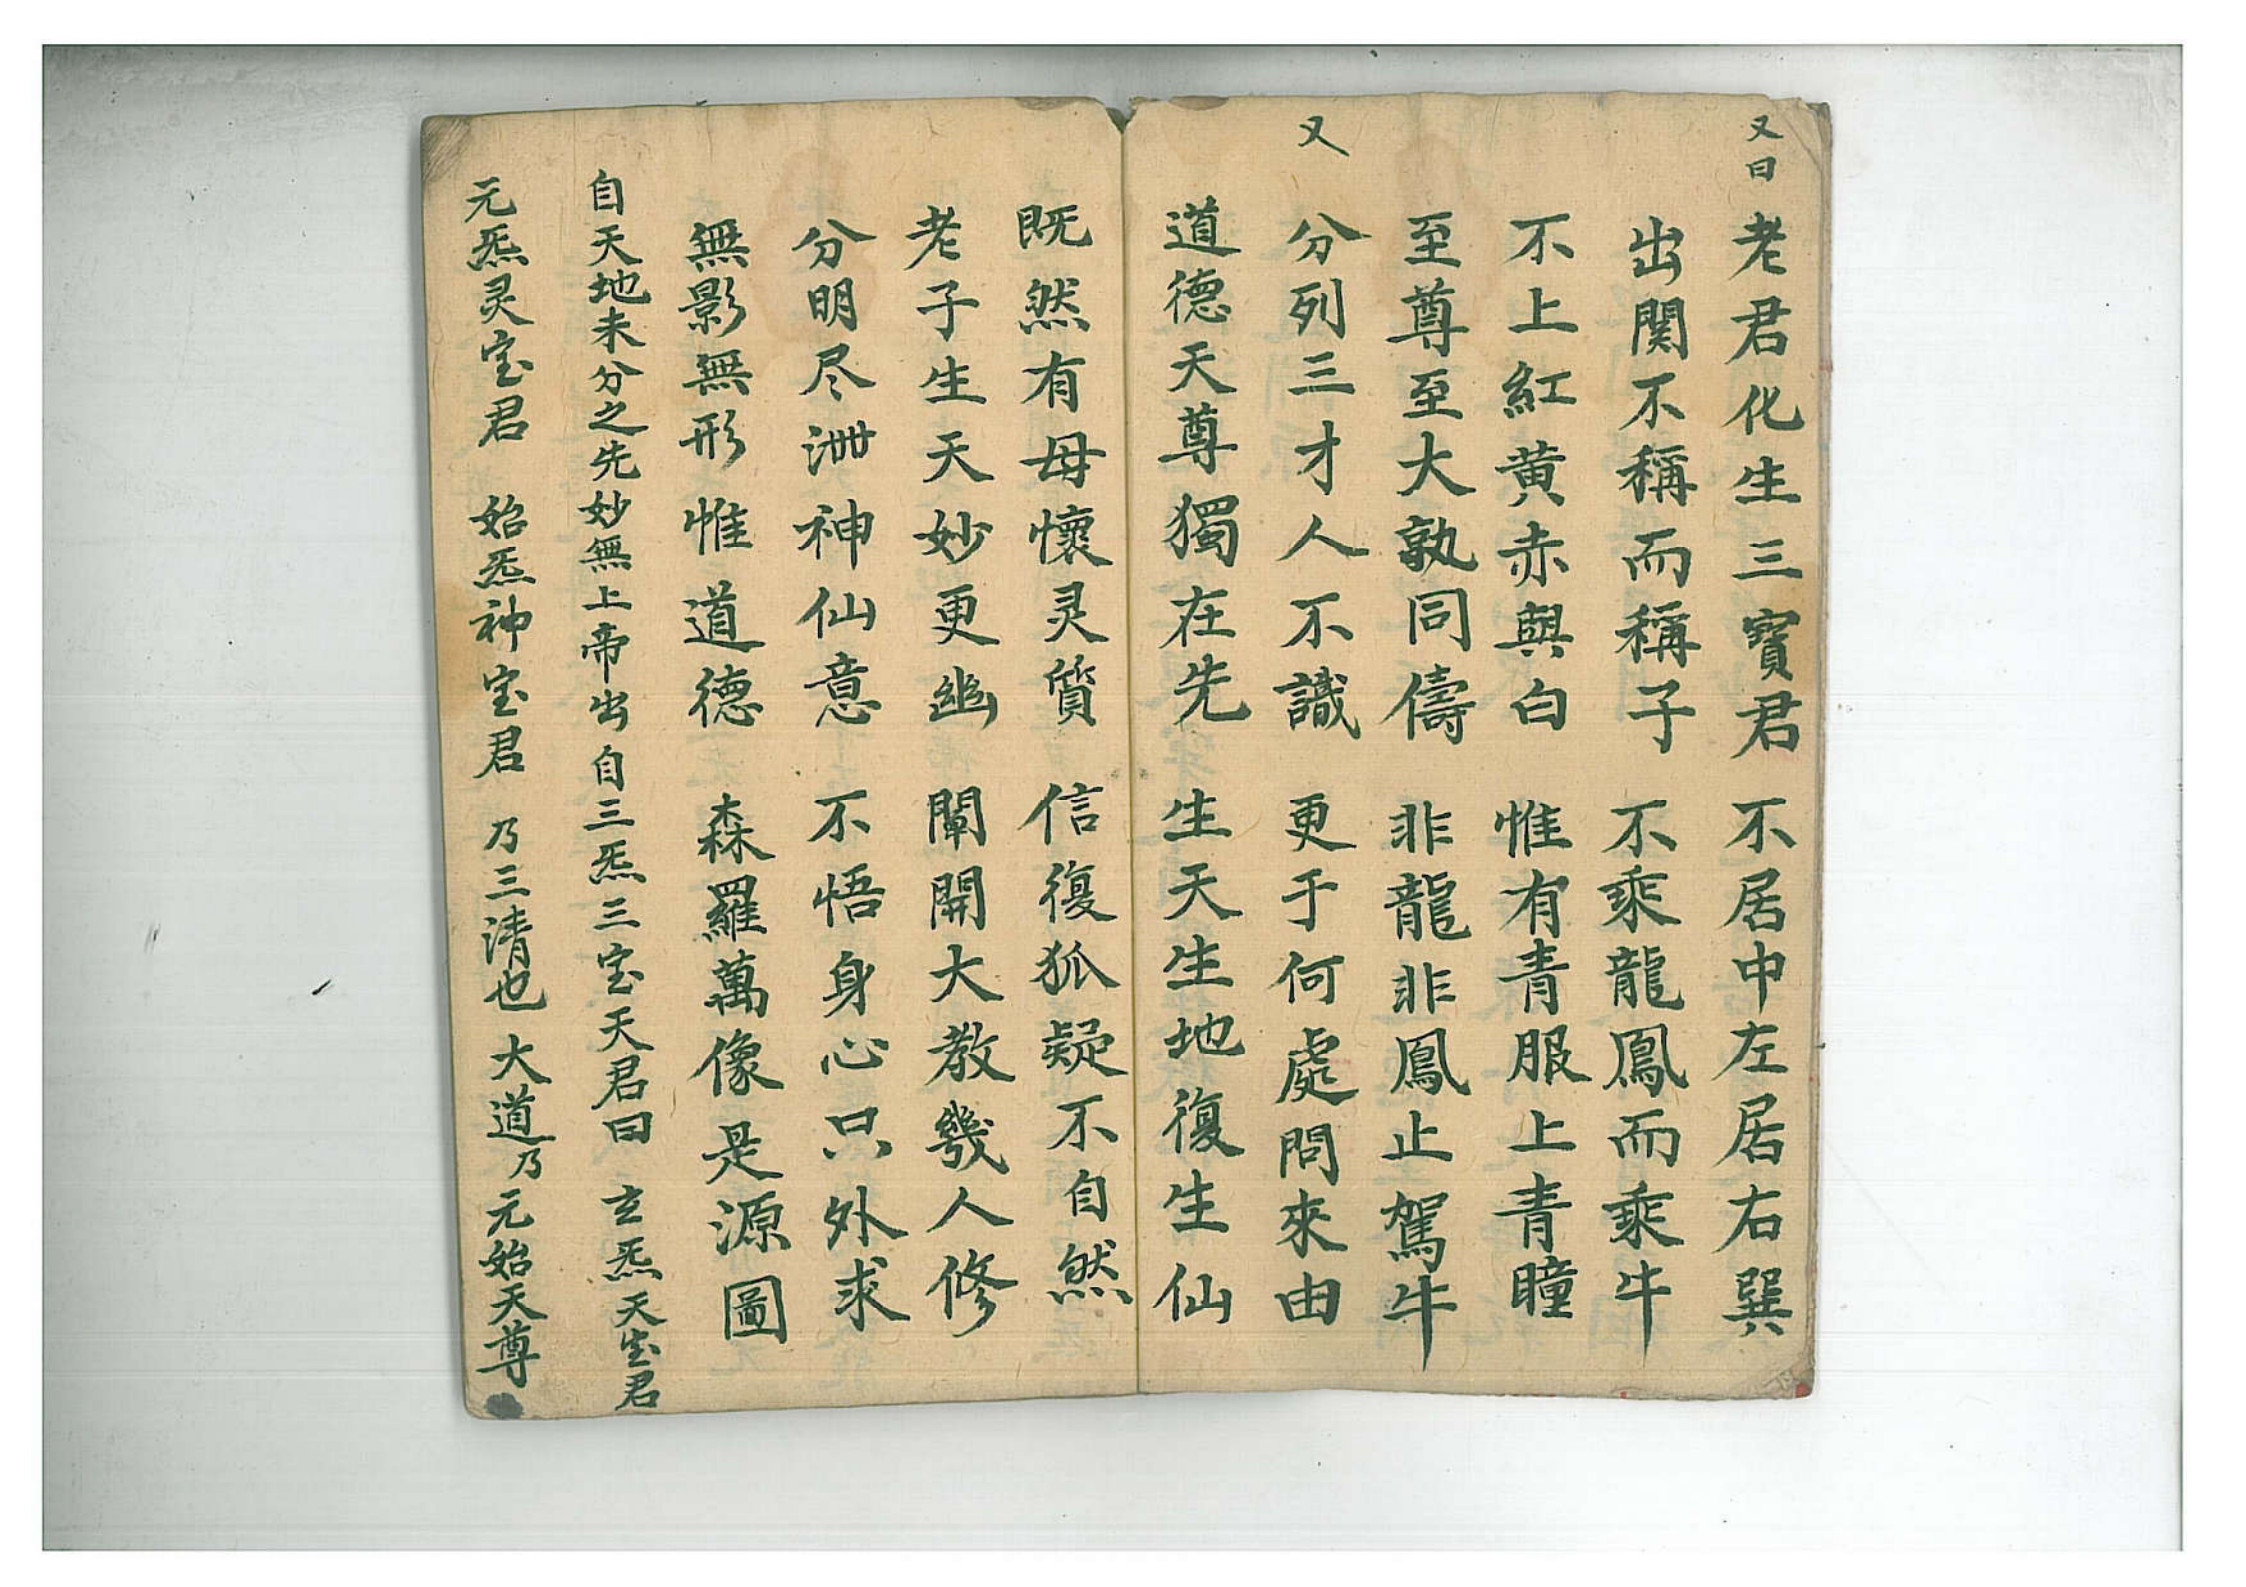 又曰 老君化生三寶君 不居中左居右巽
出関不稱而稱子 不乘龍鳳而乘牛
不上紅黄赤與白 惟有青服上青瞳
至尊至大孰同儔 非龍非鳳止駕牛
又 分列三才人不識 更于何處問來由
道德天尊獨在先 生天生地復生仙
既然有母懷灵質 信復狐疑不自然
老子生天妙更幽 闡開大教幾人修
分明尽泄神仙意 不悟身心只外求
無影無形惟道德 森羅萬像是源圖
自天地未分之先妙無上帝出自三炁三宝天君曰 玄炁天宝君
元炁灵宝君 始炁神宝君 乃三清也 大道乃元始天尊